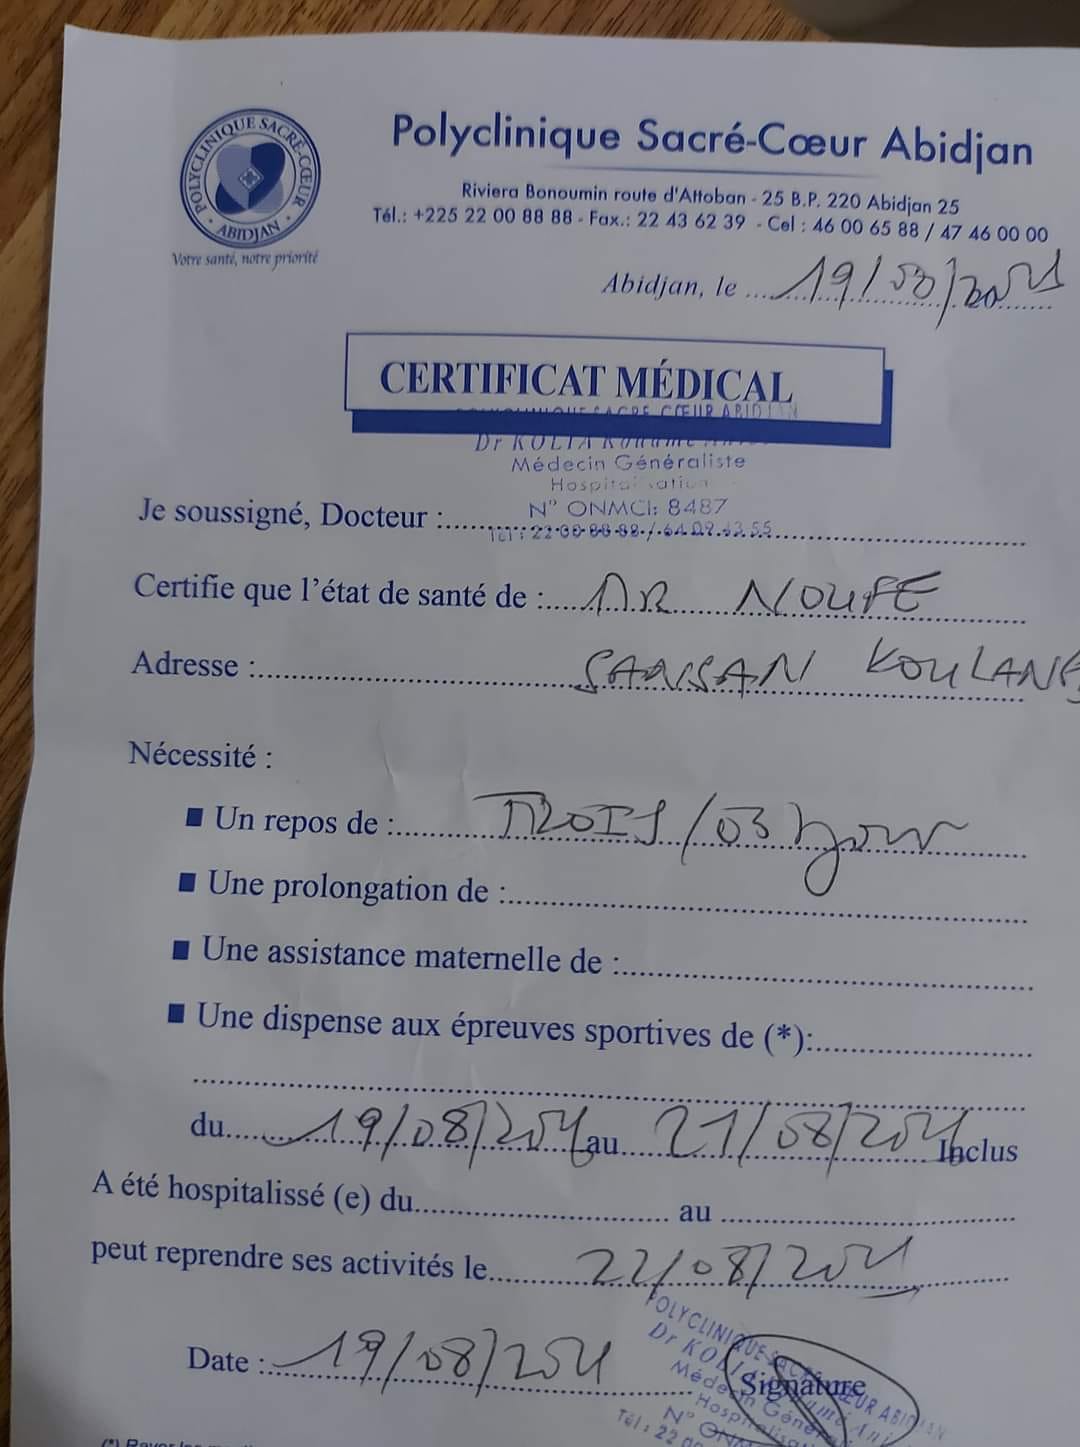 POLYCLINIQUE SACRÉ-CŒUR
ABIDJAN
Votre santé, notre priorité
Polyclinique Sacré-Cœur Abidjan
Riviera Bonoumin route d'Attoban - 25 B.P. 220 Abidjan 25
Tél.: +225 22 00 88 88 - Fax.: 22 43 62 39 - Cel : 46 00 65 88 / 47 46 00 00
Abidjan, le 19/08/2021
CERTIFICAT MÉDICAL
POLYCLINIQUE SACRE CŒUR ABIDJAN
Dr KOLIA Kouamé
Médecin Généraliste
Hospitalisation
N° ONMCI: 8487
Je soussigné, Docteur :
Tel : 22-00-88-88 / 64.09.43.55
Certifie que l'état de santé de : MR NOUFE
Adresse : SANSAN KOULANG
Nécessité :
Un repos de : TROIS/03 jours
Une prolongation de :
Une assistance maternelle de :
Une dispense aux épreuves sportives de (*):
du 19/08/2021 au 21/08/2021 Inclus
A été hospitalissé (e) du au
peut reprendre ses activités le 22/08/2021
Date : 19/08/2021
Signature
POLYCLINIQUE SACRE CŒUR ABIDJAN
Dr KOLIA Kouamé
Médecin Général
Hospitalisa
N° ONM
Tél : 22 00
(*) Rayer les